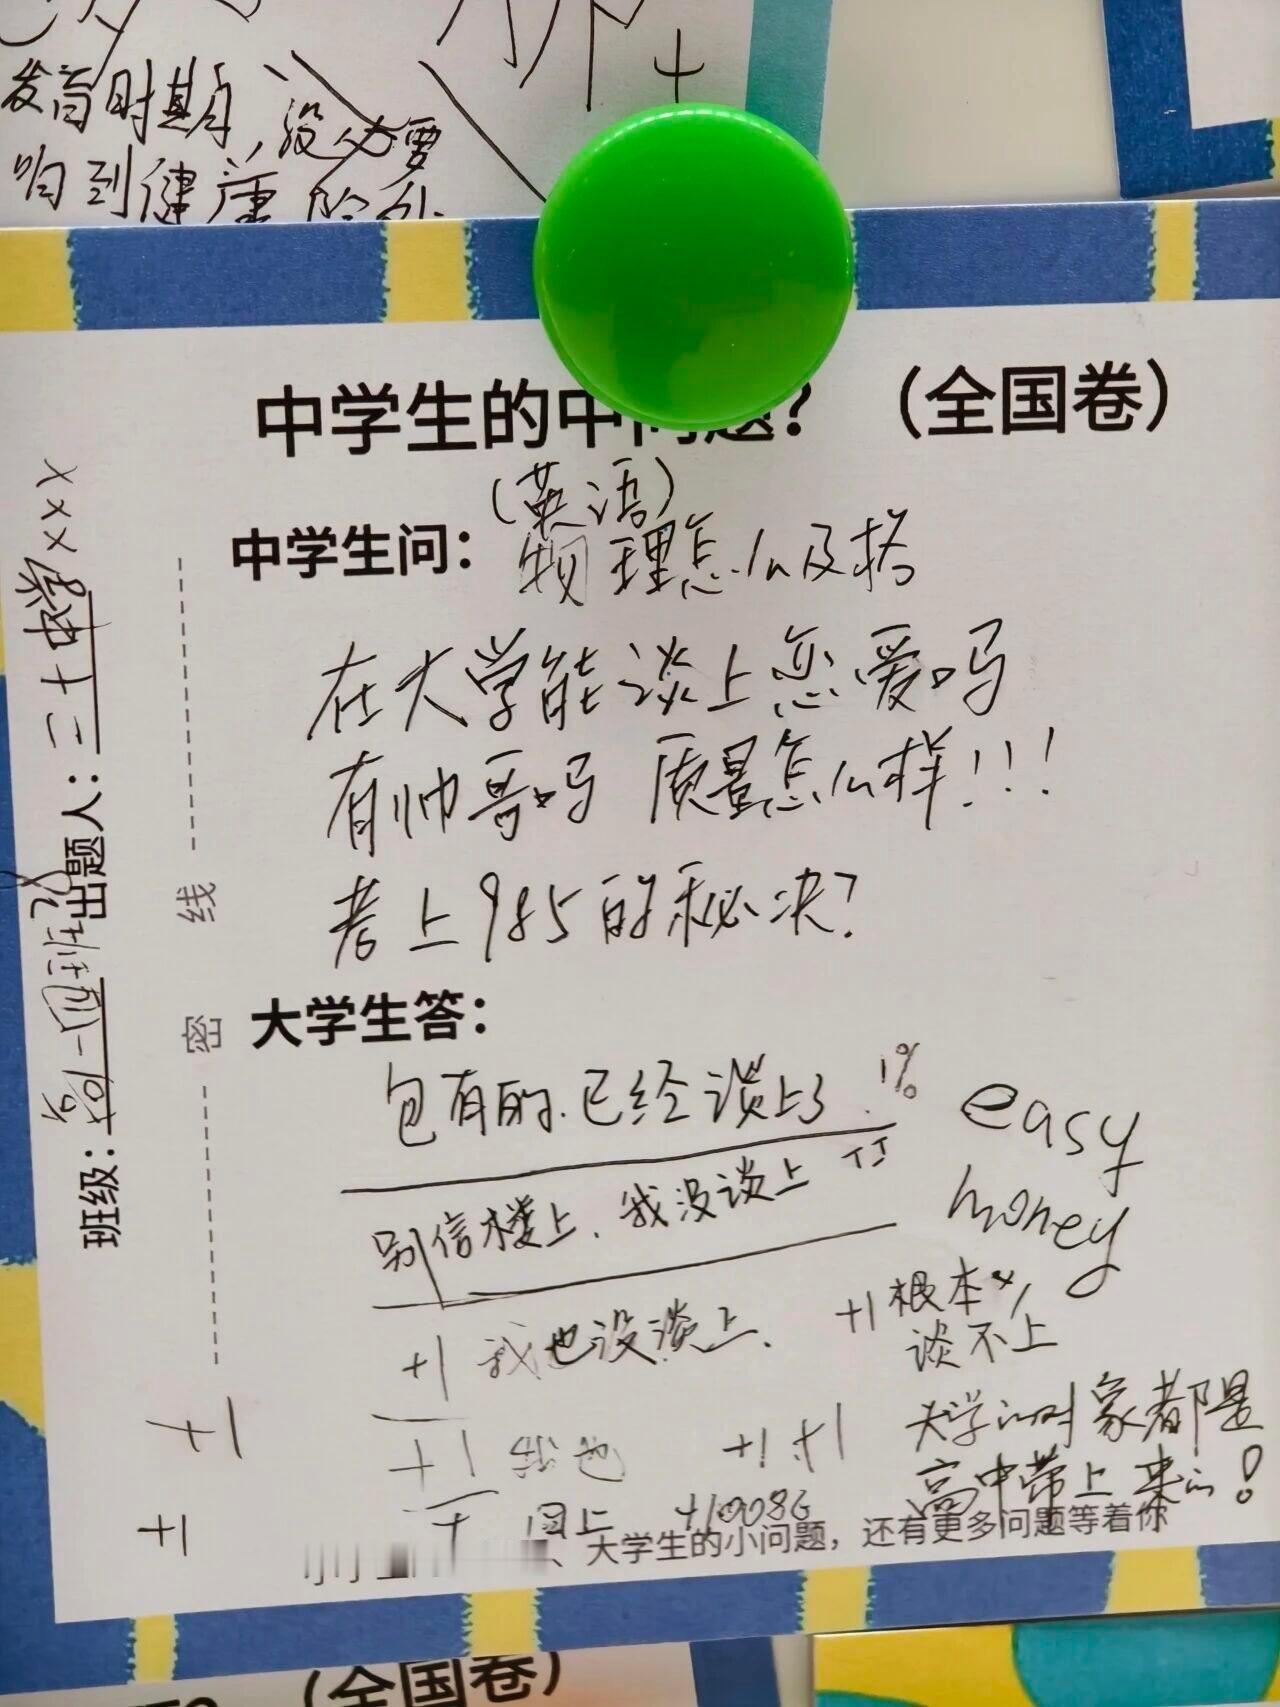 发育时期,没必要
响到健康
中学生的中问题?(全国卷)
(英语)
中学生问:物理怎么及格
在大学能谈上恋爱吗
有帅哥吗 质量怎么样!!!
考上985的秘决?
班级:初一四班 出题人:二十中学xxx
密 线
大学生答:
包有的.已经谈上了.1%
easy
money
别信楼上.我没谈上 TT
+1 我也没谈上.
+1根本
谈不上
+1 我也
+1 +1
大学的对象都是
高中带上来的!
同上 +10086
、大学生的小问题,还有更多问题等着你
(全国卷)